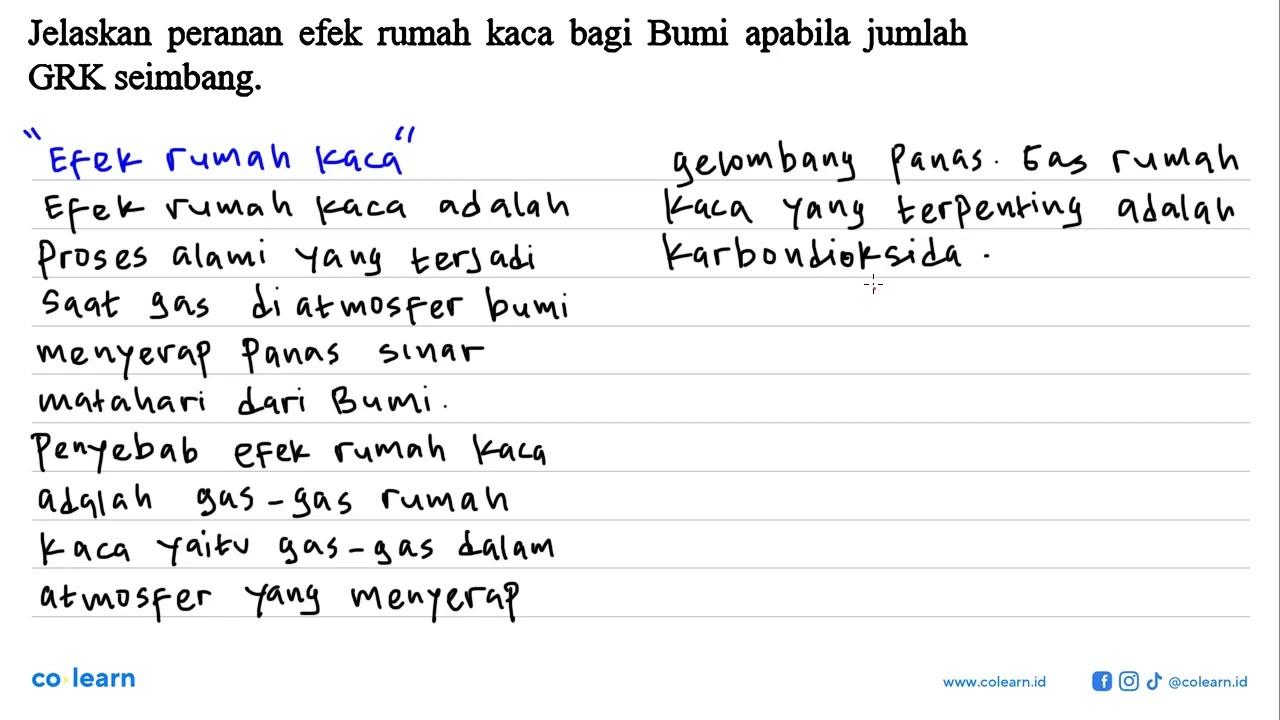 Jelaskan peranan efek rumah kaca bagi Bumi apabila jumlah
GRK seimbang.
"Efek rumah kaca"
Efek rumah kaca adalah
Proses alami yang terjadi
saat gas di atmosfer bumi
menyerap panas sinar
matahari dari Bumi.
Penyebab efek rumah kaca
adalah gas-gas rumah
kaca yaitu gas-gas dalam
atmosfer yang menyerap
gelombang panas. Gas rumah
kaca yang terpenting adalah
karbondioksida.
co learn
www.colearn.id
@colearn.id